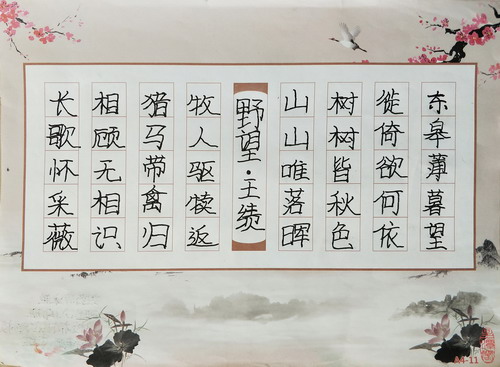 东皋薄暮望
徙倚欲何依
树树皆秋色
山山唯落晖
野望·王绩
牧人驱犊返
猎马带禽归
相顾无相识
长歌怀采薇
A4-11